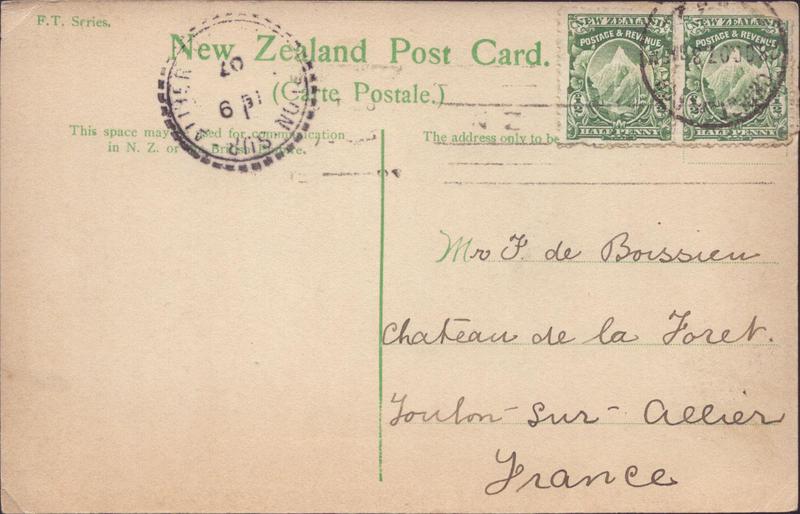 F.T. Series.
New Zealand Post Card.
(Carte Postale.)
This space may used for communication
in N. Z. or British
The address only to be
NEW ZEALAND
POSTAGE & REVENUE
HALF PENNY
NEW ZEALAND
POSTAGE & REVENUE
HALF PENNY
SUR
07
Mr F. de Boissieu
Chateau de la Foret.
Toulon-sur-Allier
France